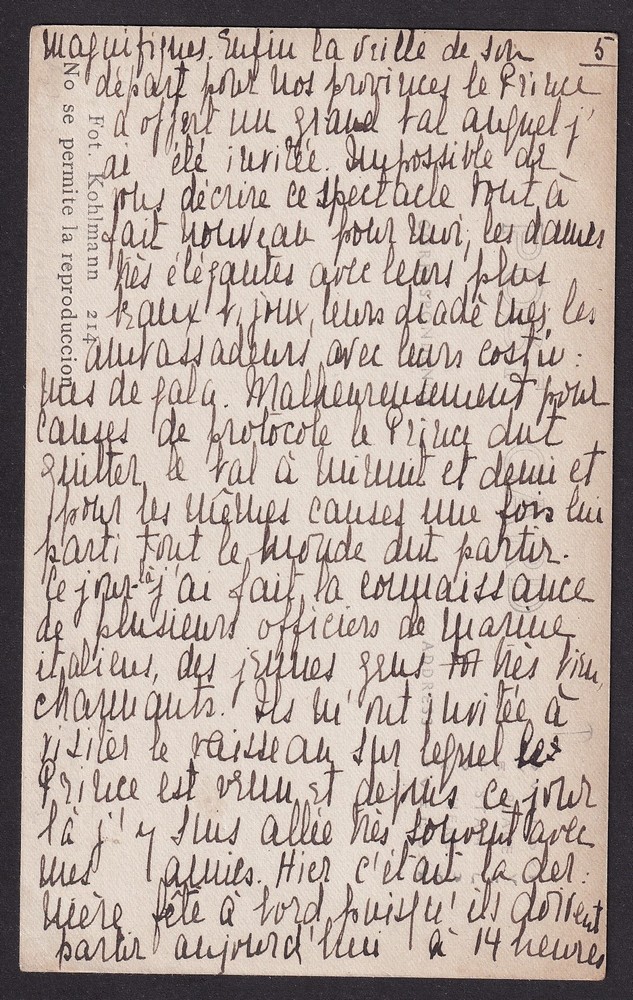 5
magnifiques. Enfin la veille de son
départ pour nos provinces le Prince
a offert un grand bal auquel j'
ai été invitée. Impossible de
vous décrire ce spectacle tout à
fait nouveau pour moi, les dames
très élégantes avec leurs plus
beaux bijoux, leurs diadèmes, les
ambassadeurs avec leurs costu:
mes de gala. Malheureusement pour
causes de protocole le Prince dut
quitter le bal à minuit et demi et
pour les mêmes causes une fois lui
parti tout le monde dut partir.
Ce jour-là j'ai fait la connaissance
de plusieurs officiers de marine
italiens, des jeunes gens très bien,
charmants. Ils m'ont invitée à
visiter le vaisseau sur lequel le
Prince est venu et depuis ce jour
là j'y suis allée très souvent avec
mes amies. Hier c'était la der:
nière fête à bord puisqu'ils doivent
partir aujourd'hui à 14 heures
Fot. Kohlmann 214
No se permite la reproduccion
ADDRESS